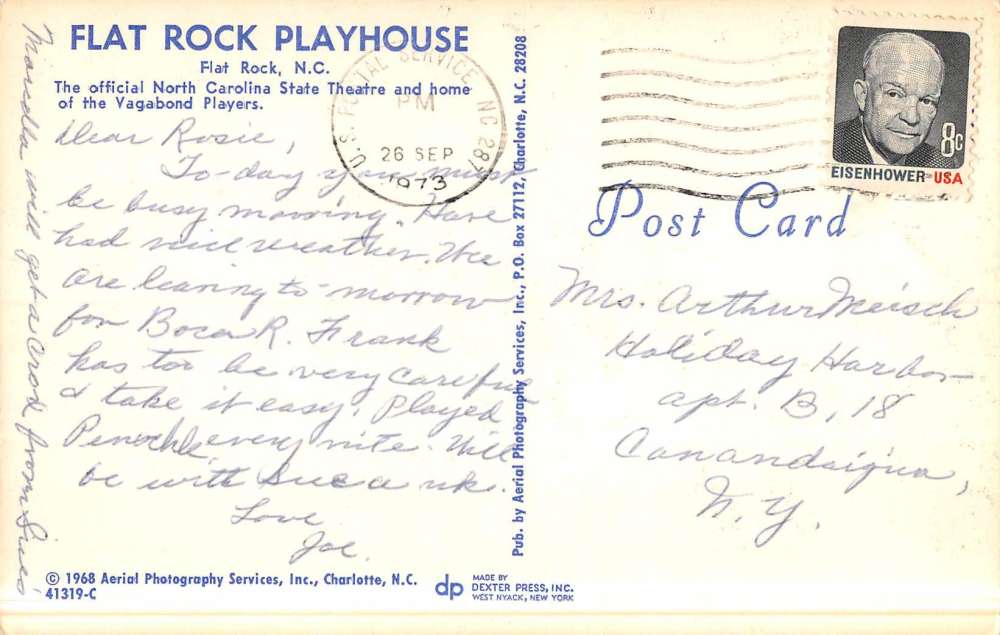 FLAT ROCK PLAYHOUSE
Flat Rock, N.C.
The official North Carolina State Theatre and home
of the Vagabond Players.
Dear Rosie,
To-day you must
be busy mooving. Have
had nice weather. Wee
are leaving to-morrow
for Boca R. Frank
has too be very careful
& take it easy. Played
Penochle every nite. Will
be with Sue a wk.
Love
Joe.
will get a card from Sue's
© 1968 Aerial Photography Services, Inc., Charlotte, N.C.
41319-C
Pub. by Aerial Photography Services, Inc., P.O. Box 27112, Charlotte, N.C. 28208
dp
MADE BY
DEXTER PRESS, INC.
WEST NYACK, NEW YORK
U.S. POSTAL SERVICE NC 287
PM
26 SEP
1973
8c
EISENHOWER·USA
Post Card
Mrs. Arthur Meisch
Holiday Harbor
apt. B, 18
Canandaigua,
N.Y.